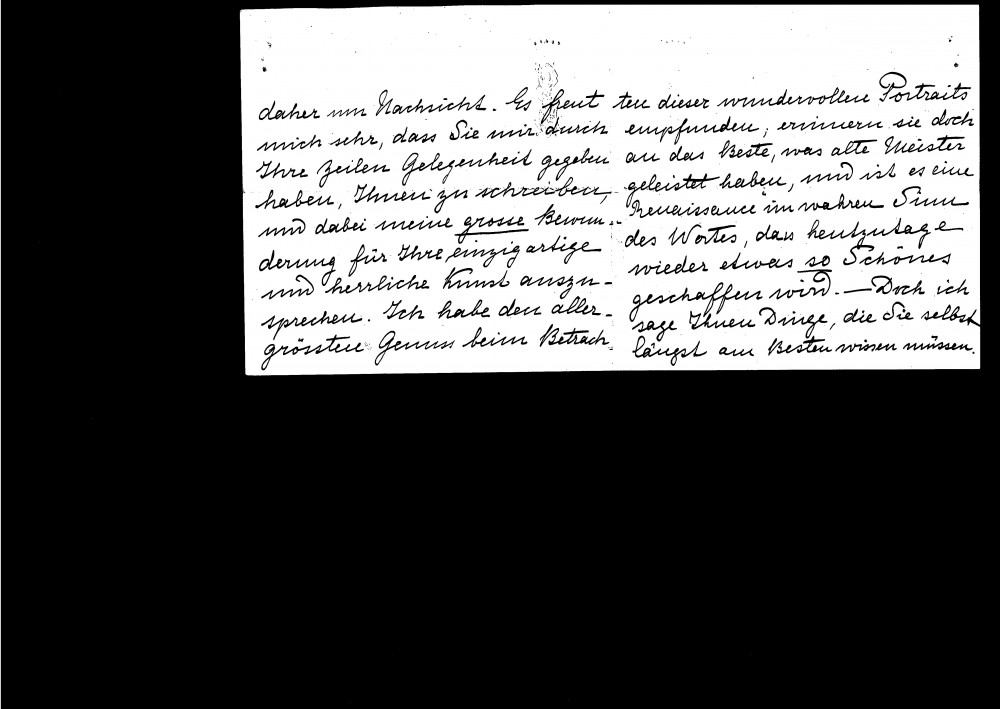 daher um Nachsicht. Es freut
mich sehr, dass Sie mir durch
Ihre Zeilen Gelegenheit gegeben
haben, Ihnen zu schreiben,
und dabei meine grosse Bewun-
derung für Ihre einzigartige
und herrliche Kunst auszu-
sprechen. Ich habe den aller-
grössten Genuss beim Betrach-
ten dieser wundervollen Portraits
empfunden, erinnern sie doch
an das Beste, was alte Meister
geleistet haben, und ist es eine
Renaissance im wahren Sinn
des Wortes, dass heutzutage
wieder etwas so Schönes
geschaffen wird. — Doch ich
sage Ihnen Dinge, die Sie selbst
längst am Besten wissen müssen.